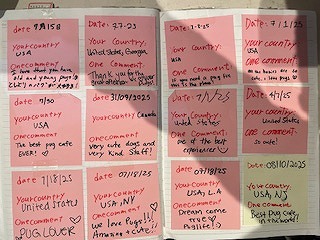 date
Your country
USA
I love this
and young pugs!
Date: 7-23
Your Country:
United States, Georgia
One Comment:
Thank you for the
Date: 7-8-25
Your Country:
USA
One Comment:
if you need a pug fix
this is the place
Date: 7/1/25
Your country
USA
One comment
date 7/30
Your country
USA
One comment
The best pug cafe
EVER! ♡
date 31/07/2025
Your country Canada
One comment
Very cute dogs and
very kind staff!
Date:
Your Country:
United States
One Comment:
one of the best
experiences ♡
Date:
Your country
United States
One comment:
So cute!
date 7/18/25
Your country
United States
One comment
PUG LOVER
date 07/18/25
Your country
USA, NY
One comment
we love Pugs!!!
Amazing + cute!!
date 07/18/25
Your country
USA, LA
One comment
Dream come
true ♡
Puglife! :)
Date: 08/10/2025
Your country
USA, NJ
One Comment
Best pug cafe
in the world!